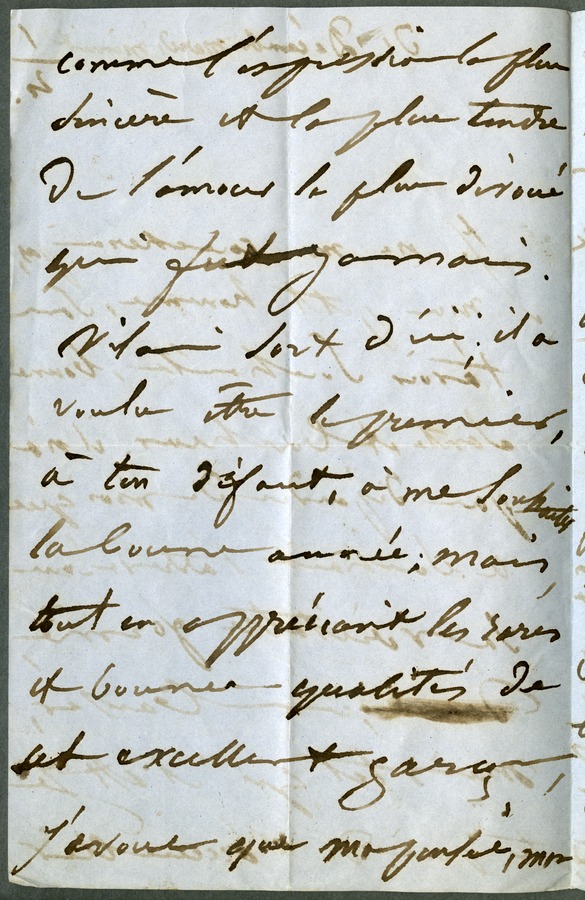 comme l'expression la plus
sincère et la plus tendre
De l'amour le plus dévoué
qui fut jamais.
sort d'ici; il a
voulu être le premier,
à ton défaut, à me souhaiter
la bonne année; mais
tout en appréciant les rares
et bonnes qualités de
cet excellent garçon,
j'avoue que ma pensée, mon